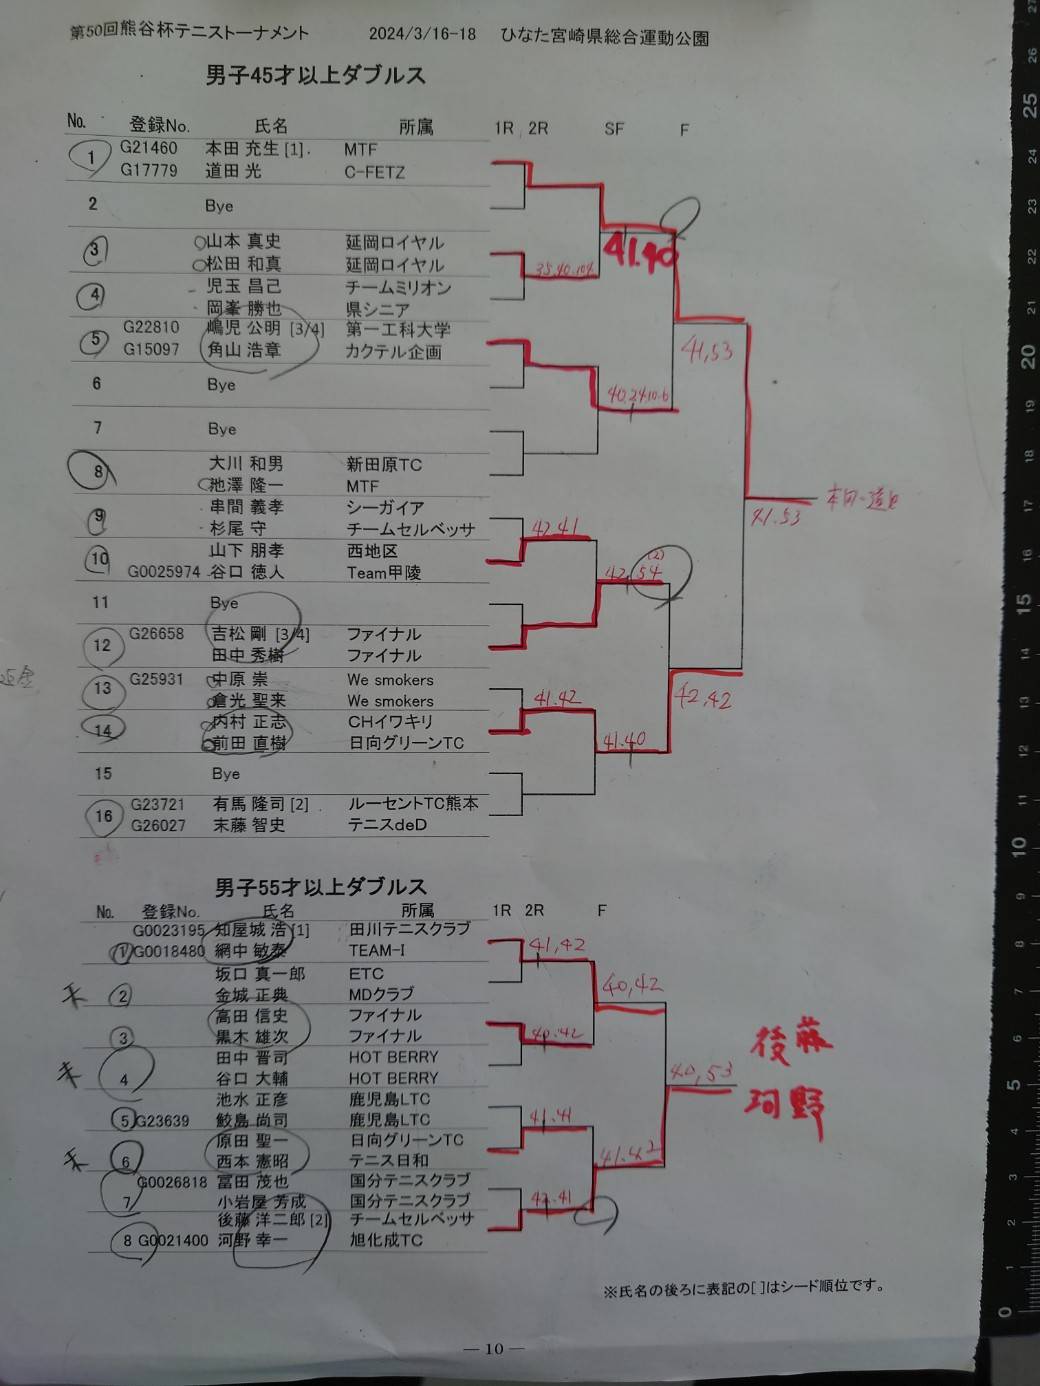 第50回熊谷杯テニストーナメント 2024/3/16-18 ひなた宮崎県総合運動公園
男子45才以上ダブルス
No. 登録No. 氏名 所属 1R 2R SF F
1 G21460 本田 充生 [1] MTF
G17779 道田 光 C-FETZ
2 Bye
3 山本 真史 延岡ロイヤル
松田 和真 延岡ロイヤル
4 児玉 昌己 チームミリオン
岡峯 勝也 県シニア
5 G22810 嶋児 公明 [3/4] 第一工科大学
G15097 角山 浩章 カクテル企画
6 Bye
7 Bye
8 大川 和男 新田原TC
池澤 隆一 MTF
9 串間 義孝 シーガイア
杉尾 守 チームセルベッサ
10 山下 朋孝 西地区
G0025974 谷口 徳人 Team甲陵
11 Bye
12 G26658 吉松 剛 [3/4] ファイナル
田中 秀樹 ファイナル
13 G25931 中原 崇 We smokers
倉光 聖来 We smokers
14 内村 正志 CHイワキリ
前田 直樹 日向グリーンTC
15 Bye
16 G23721 有馬 隆司 [2] ルーセントTC熊本
G26027 末藤 智史 テニスdeD
41.40
41,53
41.53
42.41
42,54
(2)
41.42
42,42
41.40
男子55才以上ダブルス
No. 登録No. 氏名 所属 1R 2R F
G0023195 知屋城 浩 [1] 田川テニスクラブ
1 G0018480 網中 敏泰 TEAM-I
坂口 真一郎 ETC
2 金城 正典 MDクラブ
高田 信史 ファイナル
3 黒木 雄次 ファイナル
田中 晋司 HOT BERRY
4 谷口 大輔 HOT BERRY
池水 正彦 鹿児島LTC
5 G23639 鮫島 尚司 鹿児島LTC
原田 聖一 日向グリーンTC
6 西本 憲昭 テニス日和
G0026818 冨田 茂也 国分テニスクラブ
7 小岩屋 芳成 国分テニスクラブ
後藤 洋二郎 [2] チームセルベッサ
8 G0021400 河野 幸一 旭化成TC
41,42
40,42
40.42
40,53
41.41
41.42
42.41
後藤
河野
※氏名の後ろに表記の[ ]はシード順位です。
— 10 —